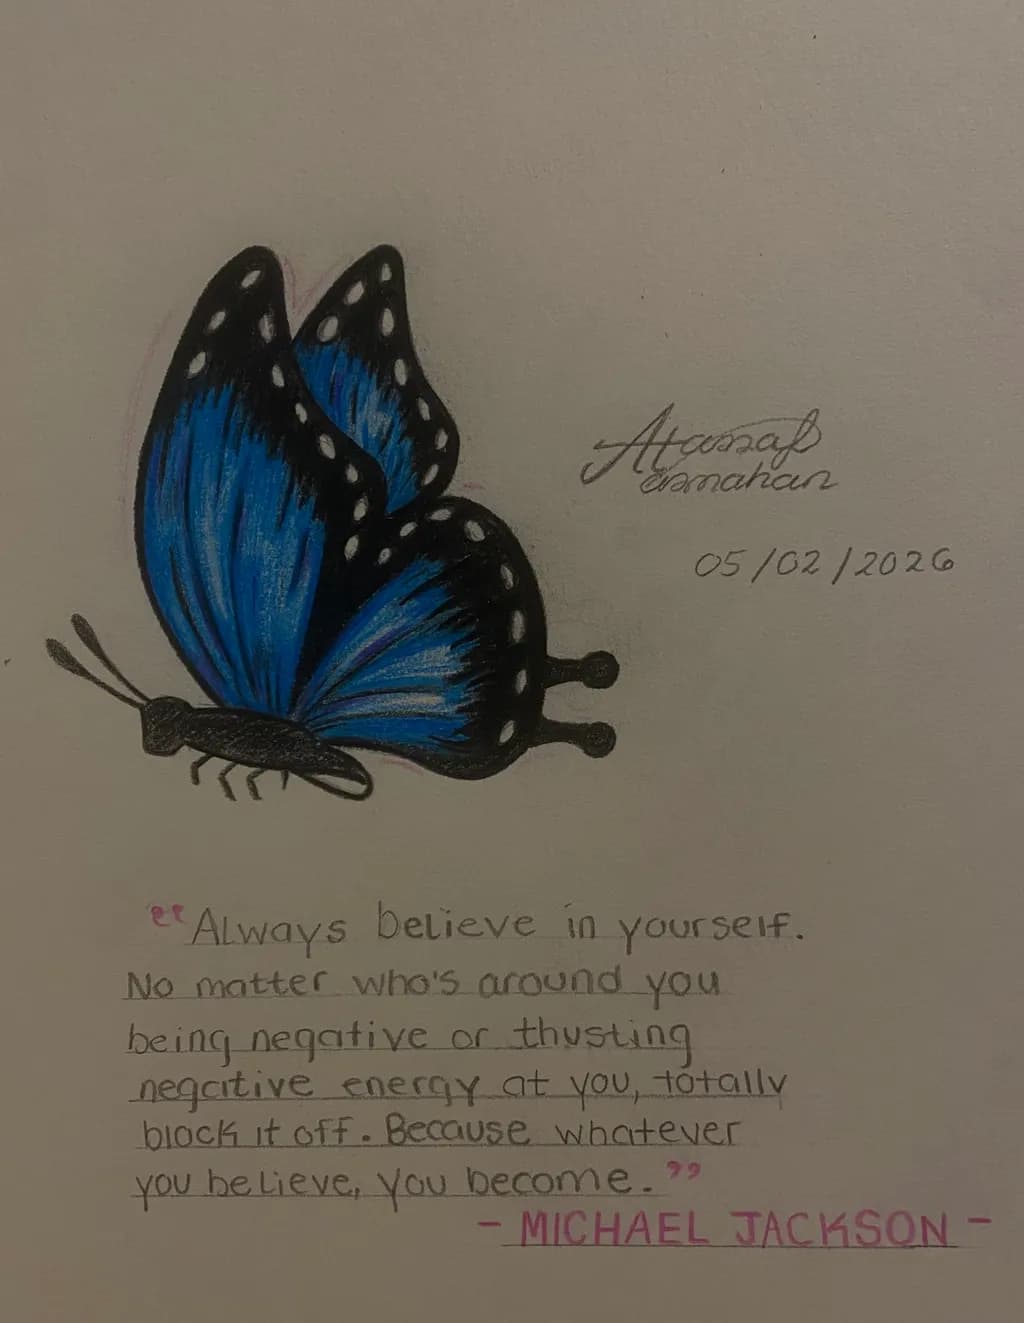 asmahan
05/02/2026
"Always believe in yourself.
No matter who's around you
being negative or thusting
negative energy at you, totally
block it off. Because whatever
you believe, you become."
- MICHAEL JACKSON -